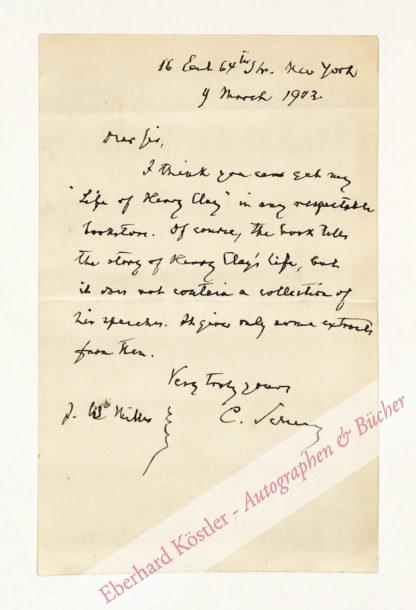 16 East 64th Str. New York
9 March 1903.
Dear Sir,
I think you can get my
"Life of Henry Clay" in any respectable
bookstore. Of course, the book tells
the story of Henry Clay's life, but
it does not contain a collection of
his speeches. It gives only some extracts
from them.
Very truly yours
C. Schurz
J.
Eberhard Köstler - Autographen & Bücher